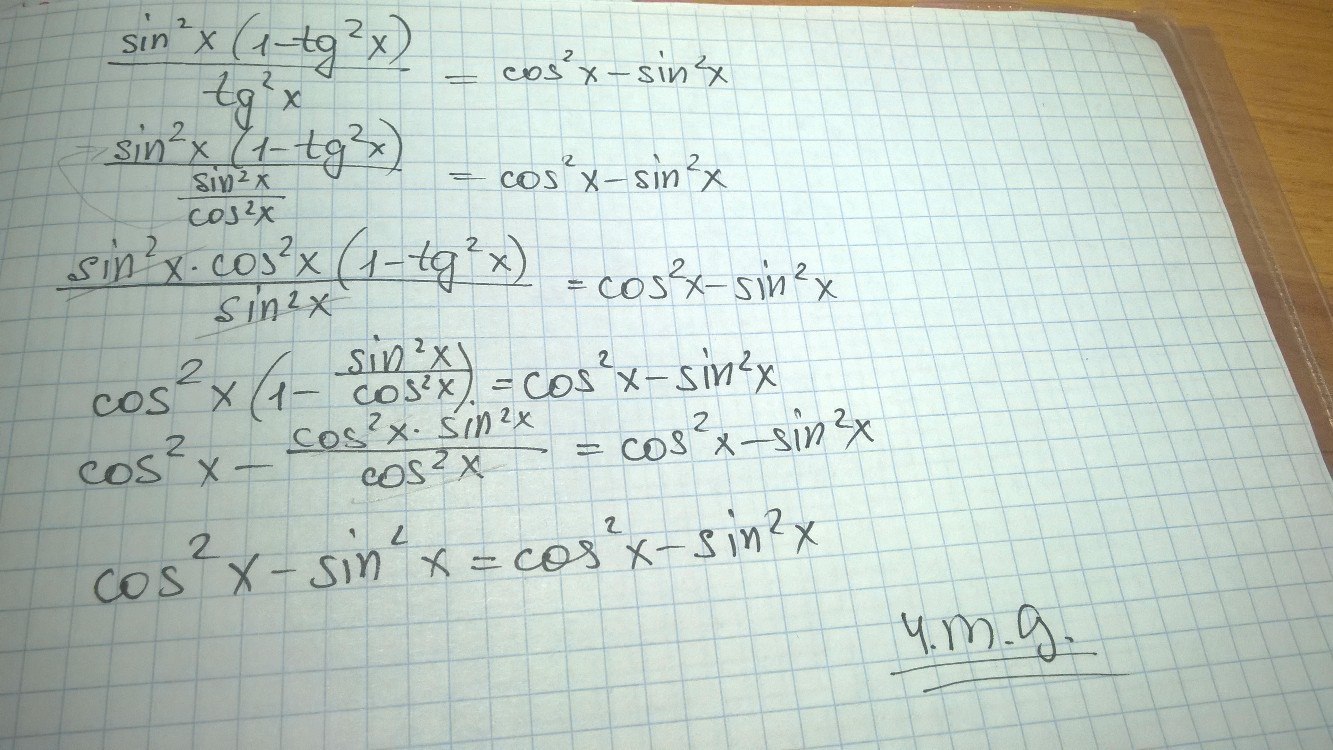 sin²x (1-tg²x) / tg²x = cos²x - sin²x
sin²x (1-tg²x) / (sin²x / cos²x) = cos²x - sin²x
sin²x · cos²x (1-tg²x) / sin²x = cos²x - sin²x
cos²x (1 - sin²x / cos²x) = cos²x - sin²x
cos²x - cos²x · sin²x / cos²x = cos²x - sin²x
cos²x - sin²x = cos²x - sin²x
ч.т.д.